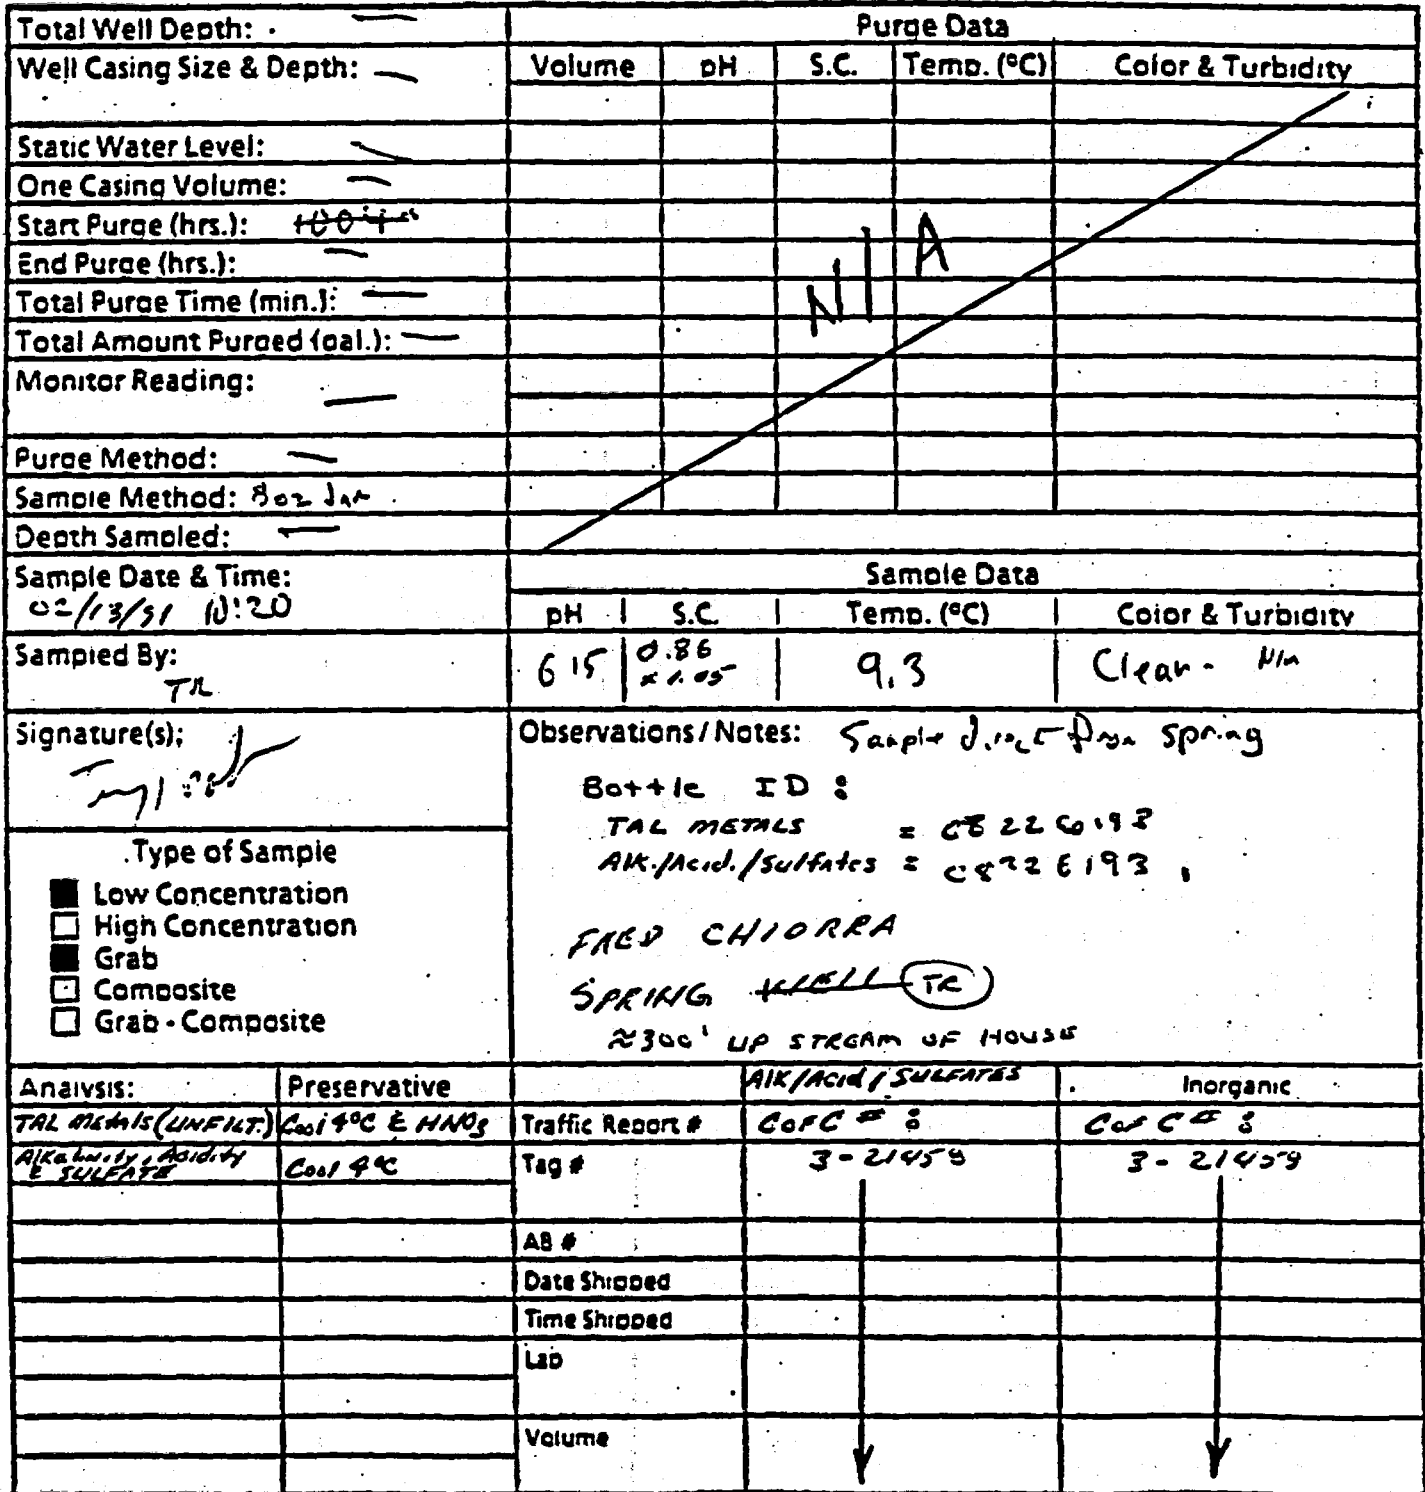 Total Well Depth: —
Well Casing Size & Depth: —
Static Water Level: —
One Casing Volume: —
Start Purge (hrs.):
End Purge (hrs.): —
Total Purge Time (min.): —
Total Amount Purged (gal.): —
Monitor Reading: —
Purge Method: —
Sample Method: 8oz Jar
Depth Sampled: —
Sample Date & Time:
02/13/91 10:20
Sampled By:
TR
Signature(s):
Type of Sample
■ Low Concentration
□ High Concentration
■ Grab
□ Composite
□ Grab - Composite
Purge Data
Volume pH S.C. Temp. (°C) Color & Turbidity
N/A
Sample Data
pH S.C. Temp. (°C) Color & Turbidity
6.15 0.86 x 1.05 9.3 Clear -
Observations/Notes: Sample direct from Spring
Bottle ID:
TAL METALS =
Alk./Acid./Sulfates =
FRED CHIORRA
SPRING WELL TR
≈300' UP STREAM OF HOUSE
Analysis: Preservative Alk/Acid/SULFATES Inorganic
TAL Metals (UNFILT.) Cool 4°C & HNO3 Traffic Report # C of C #: C of C #:
Alkalinity, Acidity & SULFATE Cool 4°C Tag # 3-21459 3-21459
AB #
Date Shipped
Time Shipped
Lab
Volume